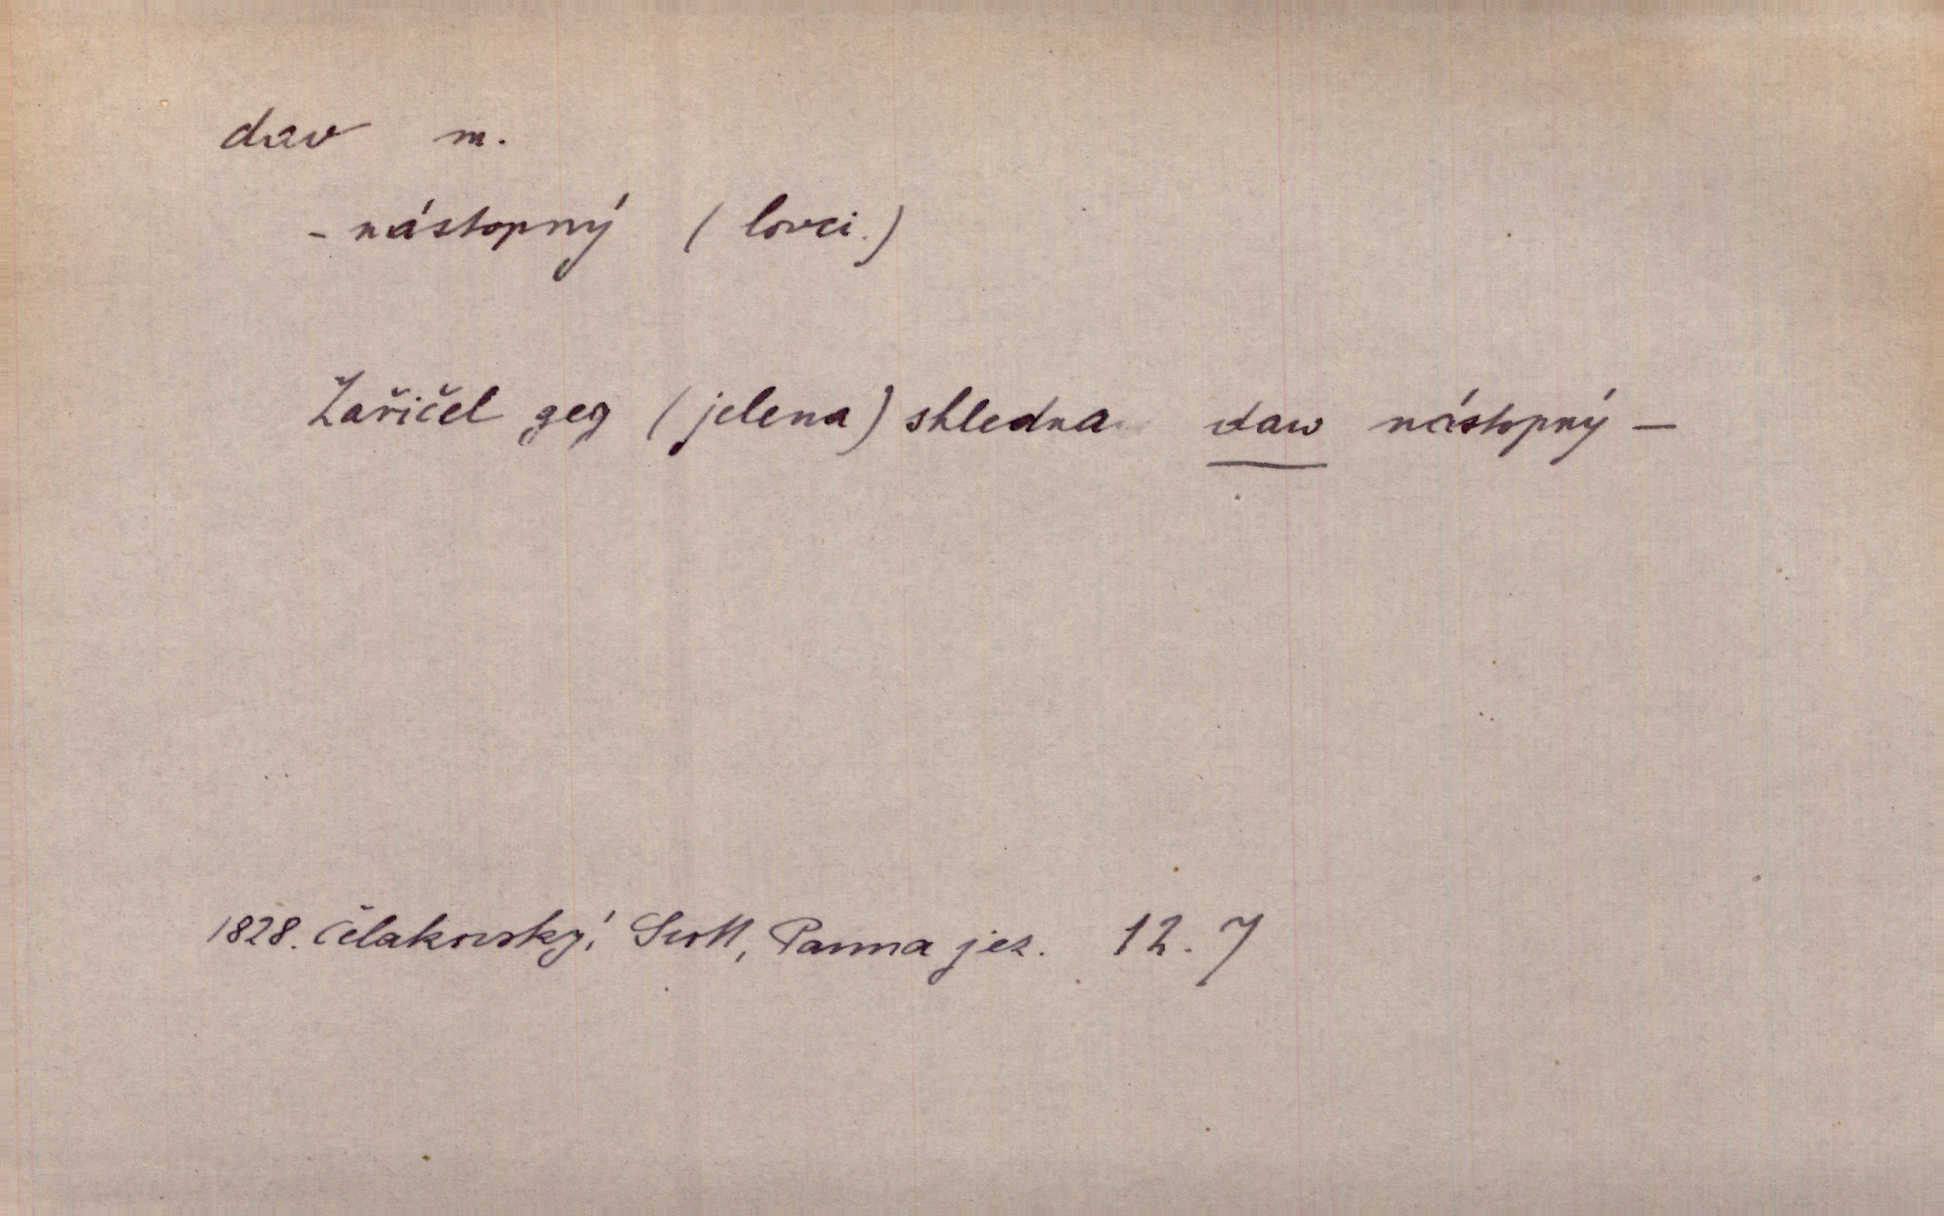 dav m.
- nástopný (lovci.)
Zařičel geg (jelena) shledna daw nástopný —
1828. Čelakovský: Scott, Panna jez. 12. 7